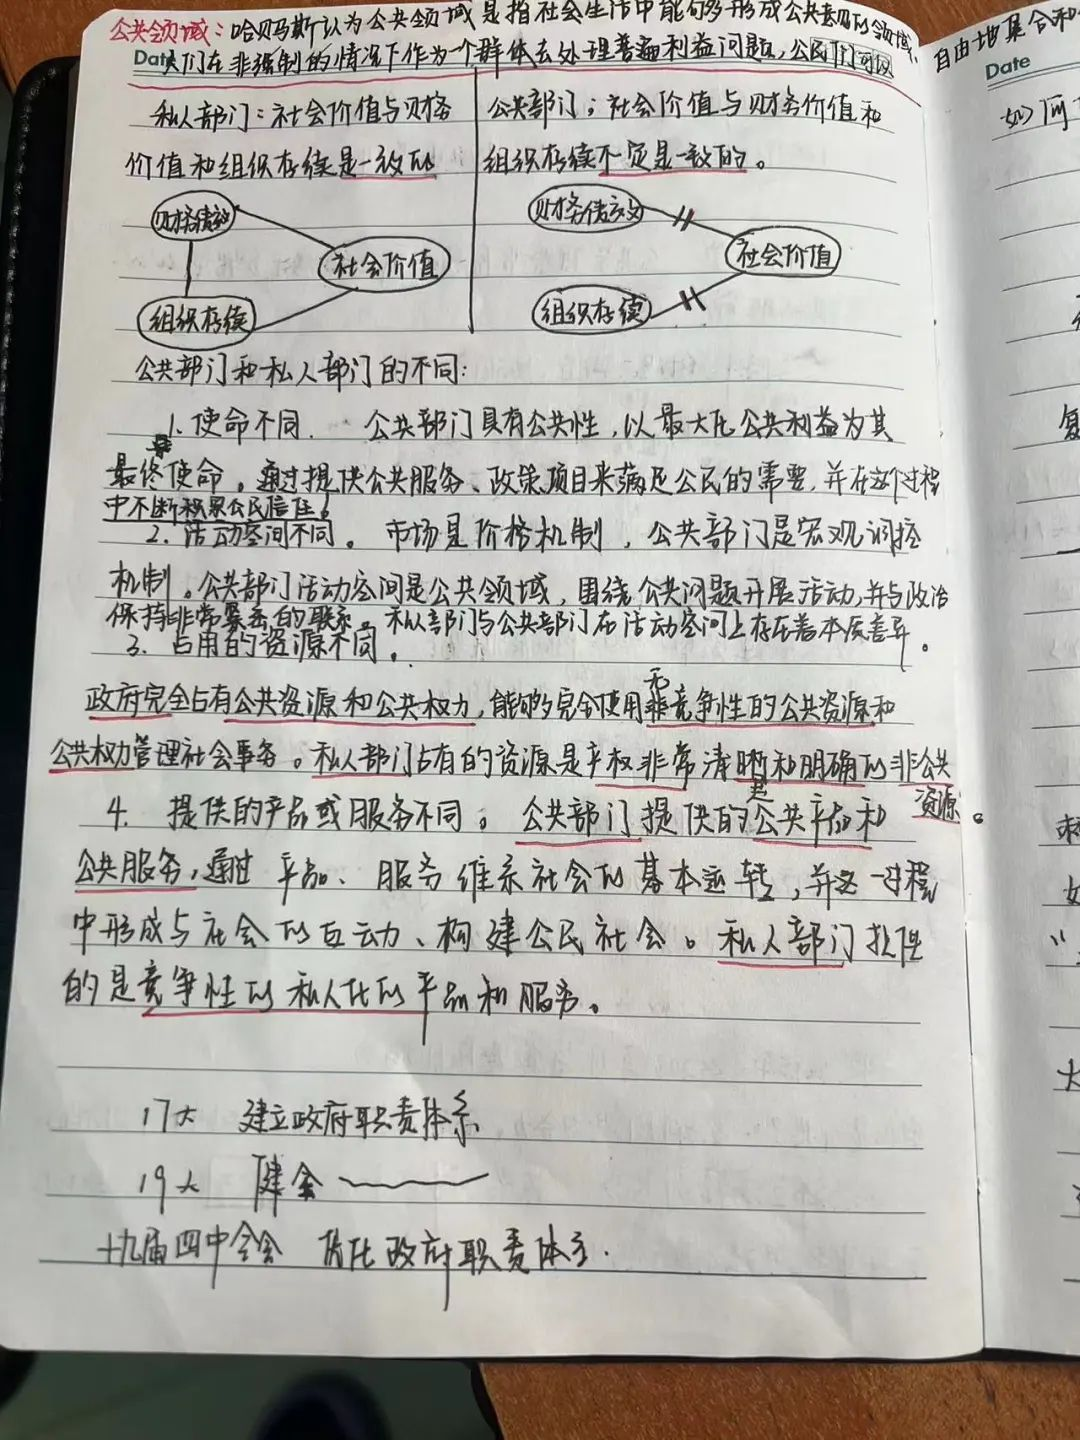 公共领域：哈贝马斯认为公共领域是指社会生活中能够形成公共意见的领域，
Date 人们在非强制的情况下作为一个群体去处理普遍利益问题，公民们可以
自由地集合和
Date
如何
私人部门：社会价值与财务
价值和组织存续是一致的
公共部门；社会价值与财务价值和
组织存续不一定是一致的。
财务绩效
社会价值
组织存续
财务绩效
社会价值
组织存续
公共部门和私人部门的不同：
1. 使命不同. 公共部门具有公共性，以最大化公共利益为其
最终使命。通过提供公共服务、政策项目来满足公民的需要，并在这个过程
中不断积累公民信任。
2. 活动空间不同。市场是价格机制，公共部门是宏观调控
机制。公共部门活动空间是公共领域，围绕公共问题开展活动，并与政治
保持非常紧密的联系。私人部门与公共部门在活动空间上存在着本质差异。
3. 占用的资源不同。
政府完全占有公共资源和公共权力，能够完全使用无竞争性的公共资源和
公共权力管理社会事务。私人部门占有的资源是产权非常清晰和明确的非公共
资源。
4. 提供的产品或服务不同。公共部门提供的是公共产品和
公共服务，通过产品、服务维系社会的基本运转，并这一过程
中形成与社会的互动、构建公民社会。私人部门提供
的是竞争性的私人化的产品和服务。
17大 建立政府职责体系
19大 健全
十九届四中全会 优化政府职责体系.